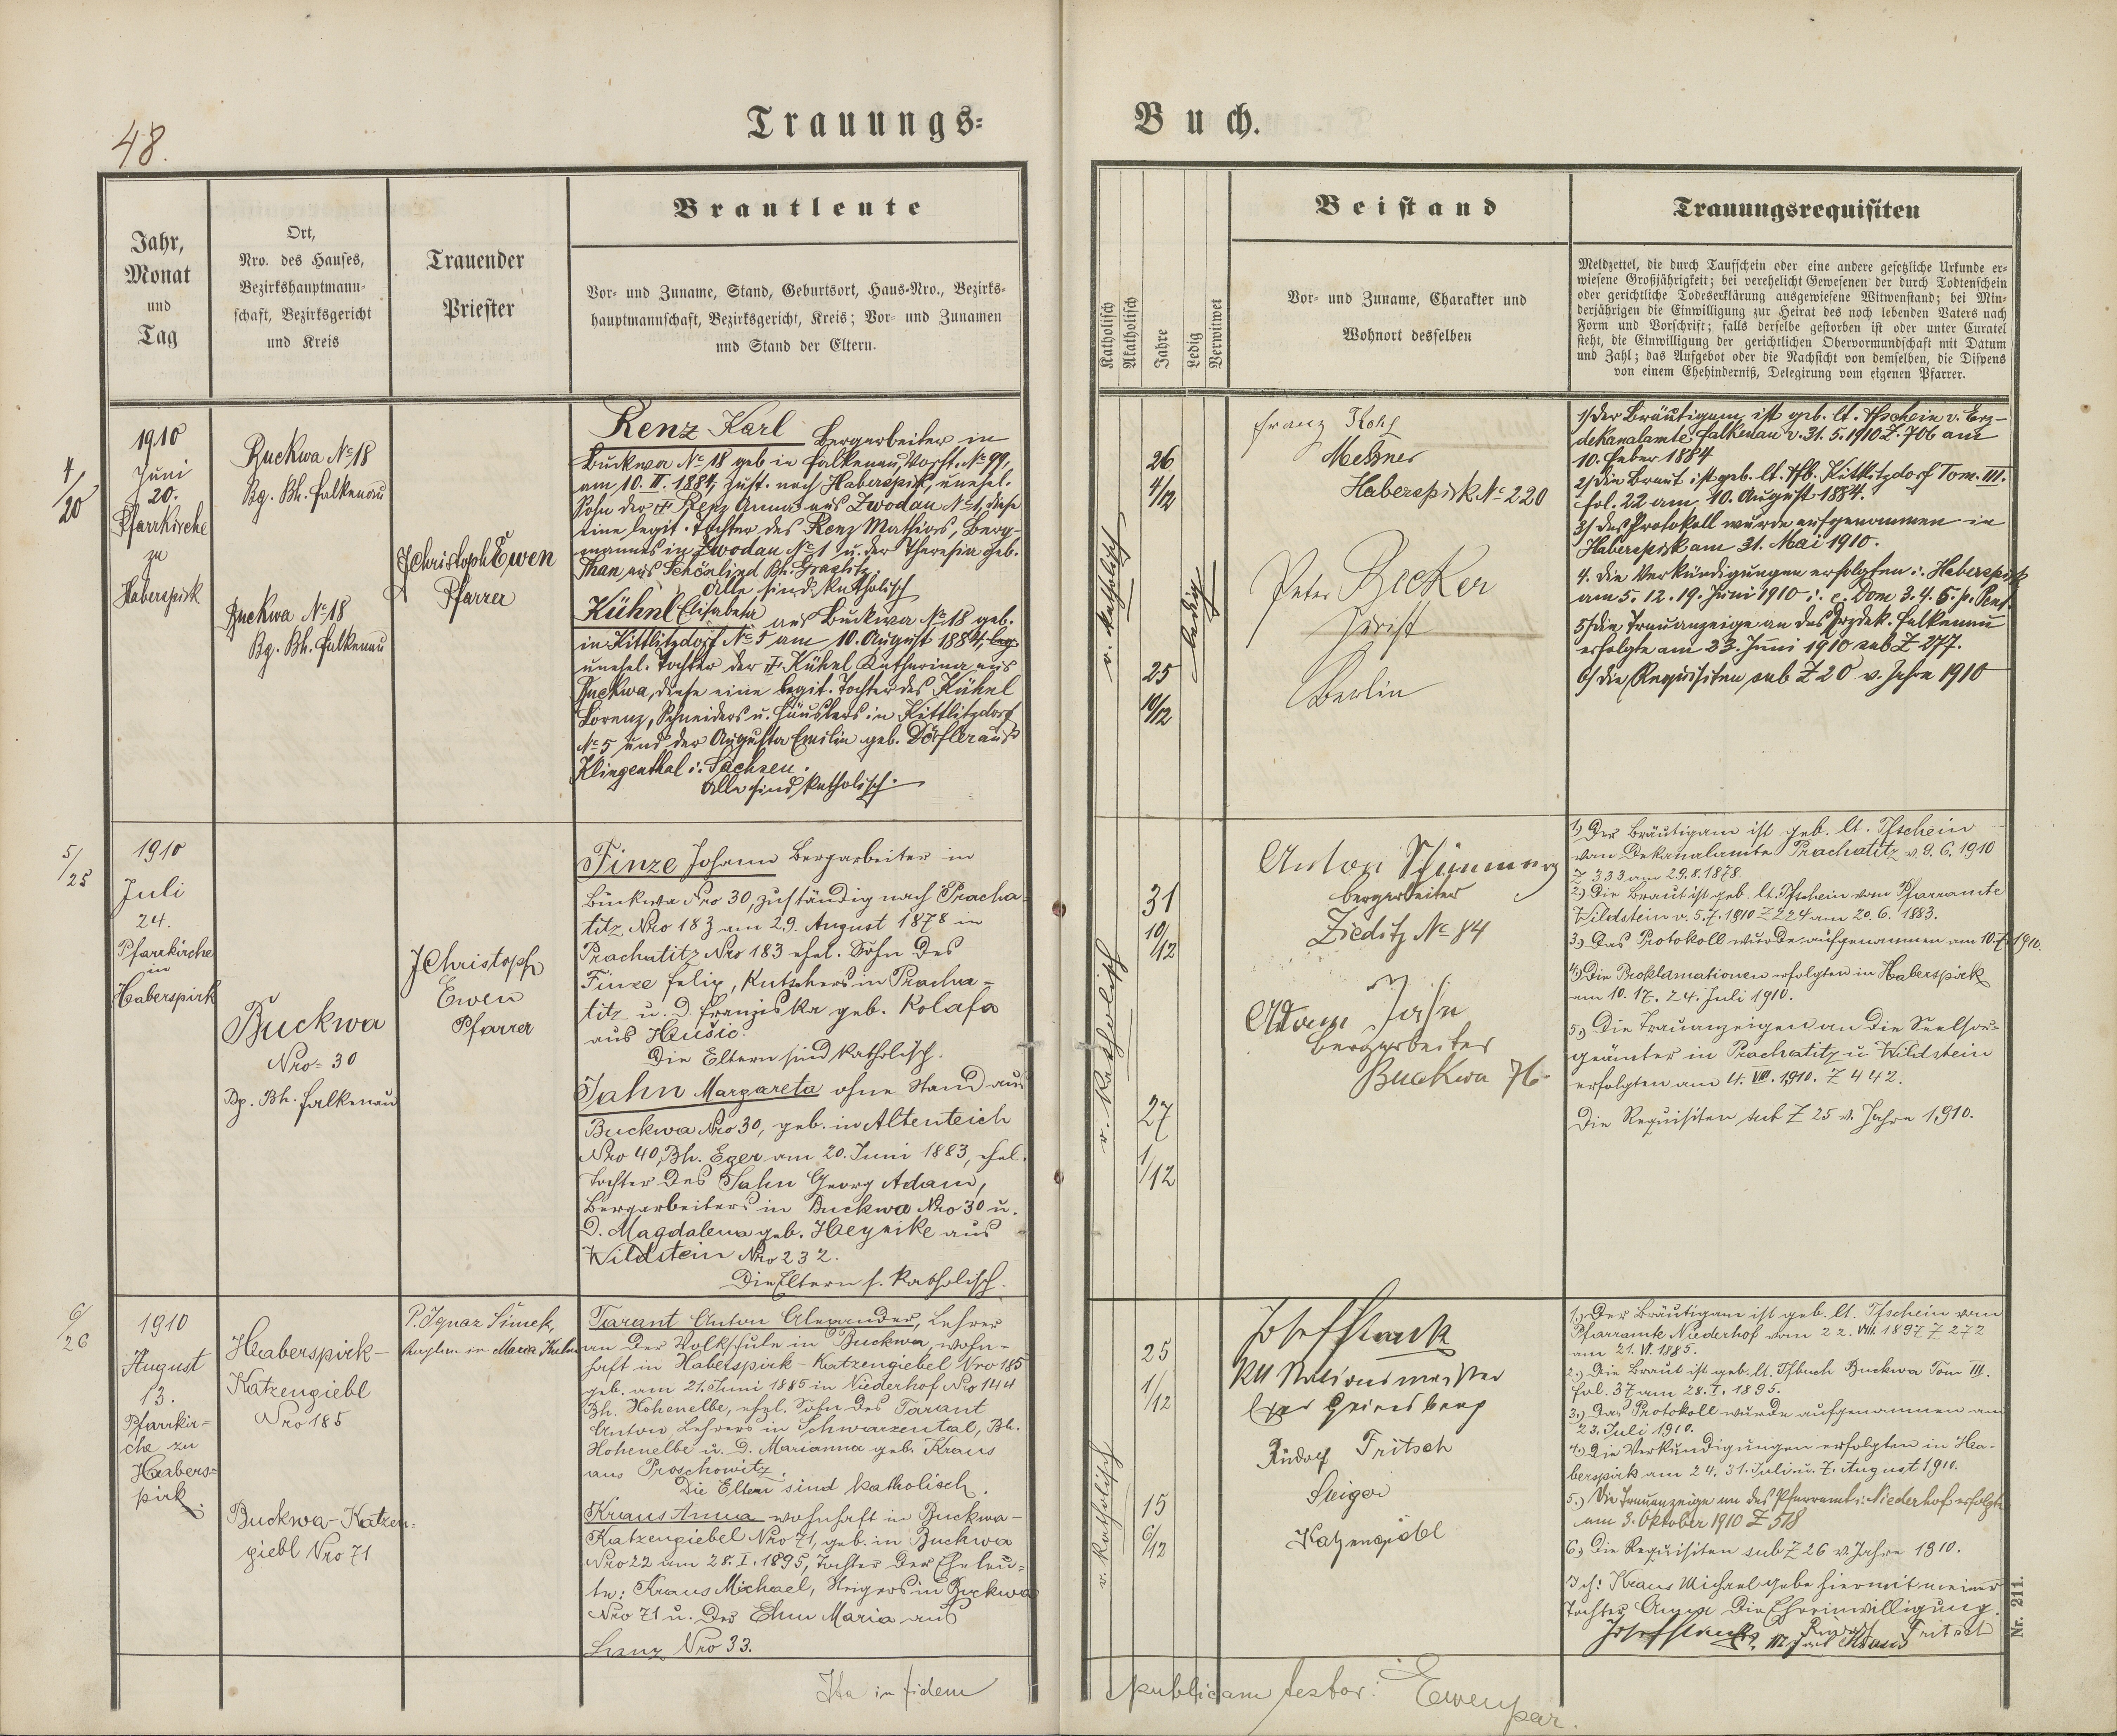 48.
Trauungs=
Buch.
Jahr,
Monat
und
Tag
Ort,
Nro. des Hauses,
Bezirkshauptmann-
schaft, Bezirksgericht
und Kreis
Trauender
Priester
Brautleute
Vor- und Zuname, Stand, Geburtsort, Haus-Nro., Bezirks-
hauptmannschaft, Bezirksgericht, Kreis; Vor- und Zunamen
und Stand der Eltern.
Katholisch
Akatholisch
Jahre
Ledig
Verwitwet
Beistand
Vor- und Zuname, Charakter und
Wohnort desselben
Trauungsrequisiten
Meldzettel, die durch Taufschein oder eine andere gesetzliche Urkunde er-
wiesene Großjährigkeit; bei verehelicht Gewesenen der durch Todtenschein
oder gerichtliche Todeserklärung ausgewiesene Witwenstand; bei Min-
derjährigen die Einwilligung zur Heirat des noch lebenden Vaters nach
Form und Vorschrift; falls derselbe gestorben ist oder unter Curatel
steht, die Einwilligung der gerichtlichen Obervormundschaft mit Datum
und Zahl; das Aufgebot oder die Nachsicht von demselben, die Dispens
von einem Ehehinderniß, Delegirung vom eigenen Pfarrer.
4/20
1910
Juni
20.
Pfarrkirche
zu
Haberspirk
Buckwa No 18
Bg. Bh. Falkenau
Buckwa No 18
Bg. Bh. Falkenau
JChristoph Ewen
Pfarrer
Renz Karl Bergarbeiter in
Buckwa No 18 geb in Falkenau, Vorst. No 99,
am 10. II. 1884, zust. nach Haberspirk, unehel.
Sohn der Renz Anna aus Zwodau No 1, diese
eine legit. Tochter des Renz Mathias, Berg-
mannes in Zwodau No 1 u. der Theresia geb.
Than aus Schönlind Bh. Graslitz.
Alle sind katholisch
Kühnl Elisabeta aus Buckwa No 18 geb.
in Kittlitzdorf No 5 am 10. August 1884,
unehel. Tochter der Kühnl Katharina aus
Buckwa, diese eine legit. Tochter des Kühnl
Lorenz, Schneiders u. Häuslers in Kittlitzdorf
No 5 und der Augusta Emilia geb. Dörfler aus
Klingenthal i. Sachsen.
Alle sind katholisch.
r. katholisch
26
4/12
25
10/12
ledig
Franz Kohl
Meßner
Haberspirk No 220
Peter Becker
Jurist
Berlin
1) Der Bräutigam ist geb. lt. Tfschein v. Erz-
dekanalamte Falkenau v. 31. 5. 1910 Z. 706 am
10. Feber 1884
2) Die Braut ist geb. lt. Tfb. Kittlitzdorf Tom. III.
fol. 22 am 10. August 1884.
3) Das Protokoll wurde aufgenommen in
Haberspirk am 31. Mai 1910.
4. Die Verkündigungen erfolgten i. Haberspirk
am 5. 12. 19. Juni 1910 i. e. Dom 3. 4. 5. p. Pent.
5) Die Trauanzeige an das Erzdek. Falkenau
erfolgte am 23. Juni 1910 sub Z 277.
6) Die Requisiten sub Z 20 v. Jahre 1910
5/25
1910
Juli
24.
Pfarrkirche
in
Haberspirk
Buckwa
Nro 30
Bg. Bh. Falkenau
JChristoph
Ewen
Pfarrer
Finze Johann Bergarbeiter in
Buckwa Nro 30, zuständig nach Pracha-
titz Nro 183 am 29. August 1878 in
Prachatitz Nro 183 ehel. Sohn des
Finze Felix, Kutschers in Pracha-
titz u. d. Franziska geb. Kolafa
aus Husic.
Die Eltern sind katholisch.
Jahn Margareta ohne Stand aus
Buckwa Nro 30, geb. in Altenteich
Nro 40, Bh. Eger am 20. Juni 1883, ehel.
Tochter des Jahn Georg Adam,
Bergarbeiters in Buckwa Nro 30 u.
d. Magdalena geb. Heynike aus
Wildstein Nro 232.
Die Eltern s. katholisch.
r. katholisch
31
10/12
27
1/12
Anton
Bergarbeiter
Zieditz No 84
Adam Jahn
Bergarbeiter
Buckwa 76
1) Der Bräutigam ist geb. lt. Tfschein
vom Dekanalamte Prachatitz v. 9. 6. 1910
Z 333 am 29. 8. 1878.
2) Die Braut ist geb. lt. Tfschein vom Pfarramte
Wildstein v. 5. 7. 1910 Z 224 am 20. 6. 1883.
3.) Das Protokoll wurde aufgenommen am 10. 7. 1910.
4) Die Proklamationen erfolgten in Haberspirk
am 10. 17. 24. Juli 1910.
5) Die Trauanzeigen an die Seelsor-
geämter in Prachatitz u. Wildstein
erfolgten am 4. VIII. 1910. Z 442.
Die Requisiten sub Z 25 v. Jahre 1910.
6/26
1910
August
13.
Pfarrkir-
che zu
Habers-
pirk.
Haberspirk-
Katzengiebl
Nro 185
Buckwa-Katzen-
giebl Nro 71
P. Ignaz Šimek,
Kaplan in Maria Kulm
Tarant Anton Alexander, Lehrer
an der Volksschule in Buckwa, wohn-
haft in Haberspirk-Katzengiebel Nro 185
geb. am 21. Juni 1885 in Niederhof Nro 144
Bh. Hohenelbe, ehel. Sohn des Tarant
Anton, Lehrers in Schwarzental, Bh.
Hohenelbe u. d. Marianna geb. Kraus
aus Proschowitz.
Die Eltern sind katholisch.
Kraus Anna wohnhaft in Buckwa-
Katzengiebel Nro 71, geb. in Buckwa
Nro 22 am 28. I. 1895, Tochter der Eheleu-
te: Kraus Michael, Steigers in Buckwa
Nro 71 u. der Ehm Maria aus
Lanz Nro 33.
r. katholisch
25
1/12
15
6/12
Josef
Rudolf Fritsch
Steiger
Katzengiebl
1.) Der Bräutigam ist geb. lt. Tfschein vom
Pfarramte Niederhof vom 22. VIII. 1897 Z 272
am 21. VI. 1885.
2.) Die Braut ist geb. lt. Tfbuch Buckwa Tom III.
fol. 37 am 28. I. 1895.
3.) Das Protokoll wurde aufgenommen am
23. Juli 1910.
4.) Die Verkündigungen erfolgten in Ha-
berspirk am 24. 31. Juli u. 7. August 1910.
5.) Die Trauanzeige an das Pfarramt i. Niederhof erfolgte
am 3. Oktober 1910 Z 518
6.) Die Requisiten sub Z 26 v. Jahre 1910.
Ich: Kraus Michael gebe hiermit meiner
Tochter Anna die Eheeinwilligung.
Josef Kraus Rudolf Fritsch
Ita in fidem
publicam testor: Ewen
par.
Nr. 211.